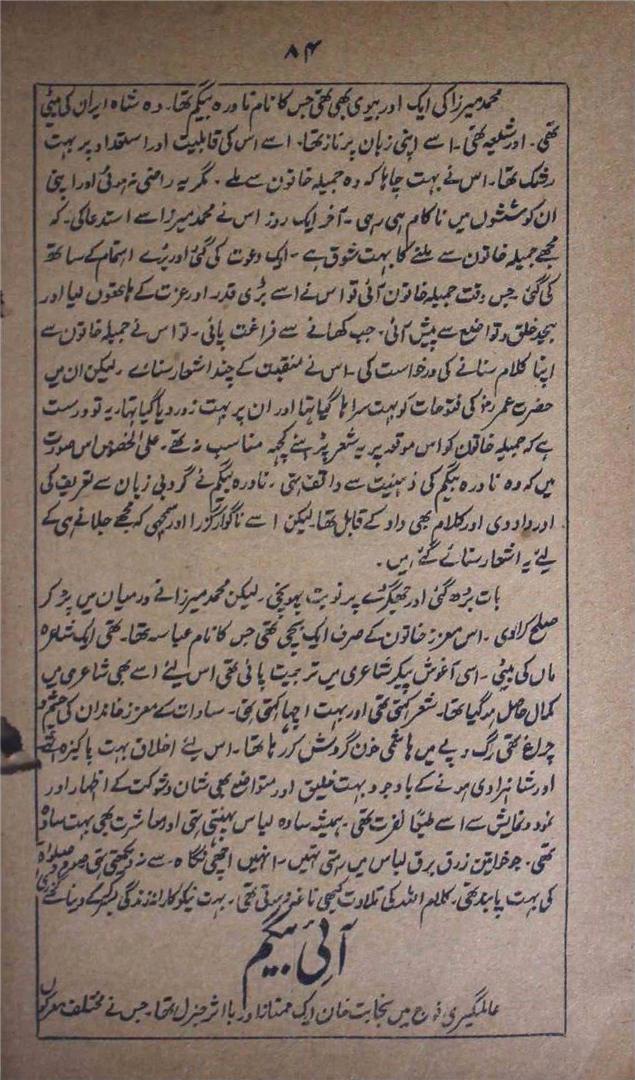 ۸۴
محمد میرزا کی ایک اور بیوی بھی تھی جس کا نام نادرہ بیگم تھا۔ وہ شاہ ایران کی بیٹی
تھی۔ اور شیعہ تھی۔ اسے اپنی زبان پر ناز تھا۔ اسے اس کی قابلیت اور استعداد پر بہت
رشک تھا۔ اس نے بہت چاہا کہ وہ جمیلہ خاتون سے ملے۔ مگر یہ راضی نہ ہوئی اور اپنی
ان کوششوں میں ناکام ہی رہی۔ آخر ایک روز اس نے محمد میرزا سے استدعا کی۔ کہ
مجھے جمیلہ خاتون سے ملنے کا بہت شوق ہے۔ ایک دعوت کی گئی اور بڑے اہتمام کے ساتھ
کی گئی۔ جس وقت جمیلہ خاتون آئی تو اس نے اسے بڑی قدر اور عزت کے ہاتھوں لیا اور
بیحد خلق و تواضع سے پیش آئی۔ جب کھانے سے فراغت پائی۔ تو اس نے جمیلہ خاتون سے
اپنا کلام سنانے کی درخواست کی۔ اس نے منقبت کے چند اشعار سنائے۔ لیکن ان میں
حضرت عمرؓ کی فتوحات کو بہت سراہا گیا تھا اور ان پر بہت زور دیا گیا تھا۔ یہ تو درست
ہے کہ جمیلہ خاتون کو اس موقعہ پر یہ شعر پڑہنے کچھ مناسب نہ تھے۔ علی الخصوص اس صورت
میں کہ وہ نادرہ بیگم کی ذہنیت سے واقف تھی۔ نادرہ بیگم نے گو دبی زبان سے تعریف کی
اور داد دی اور کلام بھی داد کے قابل تھا۔ لیکن اسے ناگوار گزرا اور سمجھی کہ مجھے جلانے ہی کے
لیئے یہ اشعار سنائے گئے ہیں۔
بات بڑھ گئی اور جھگڑے پر نوبت پہونچی۔ لیکن محمد میرزا نے درمیان میں پڑ کر
صلح کرا دی۔ اس معزز خاتون کے صرف ایک بچی تھی جس کا نام عباسہ تھا۔ تھی ایک شاعرہ
ماں کی بیٹی۔ اسی آغوش پیکر شاعری میں تربیت پائی تھی اس لیئے اسے بھی شاعری میں
کمال حاصل ہو گیا تھا۔ شعر کہتی تھی اور بہت اچھا کہتی تھی۔ سادات کے معزز خاندان کی چشم و
چراغ تھی رگ و پے میں ہاشمی خون گردش کر رہا تھا۔ اس لیئے اخلاق بہت پاکیزہ تھے
اور شاہزادی ہونے کے باوجود بہت خلیق اور متواضع تھی شان و شوکت کے اظہار اور
نمود و نمایش سے اسے طبعًا نفرت تھی۔ ہمیشہ سادہ لباس پہنتی تھی اور معاشرت بھی بہت سادہ
تھی۔ جو خواتین زرق برق لباس میں رہتی تہیں۔ انہیں اچھی نگاہ سے نہ دیکھتی تھی صوم و صلواۃ
کی بہت پابند تھی۔ کلام اللہ کی تلاوت کبھی ناغہ نہ ہوتی تھی۔ بہت نیکوکارانہ زندگی بسر کر کے دنیا سے
آئی بیگم
عالمگیری فوج میں نجابت خان ایک ممتاز اور با اثر جنرل تھا۔ جس نے مختلف معرکوں